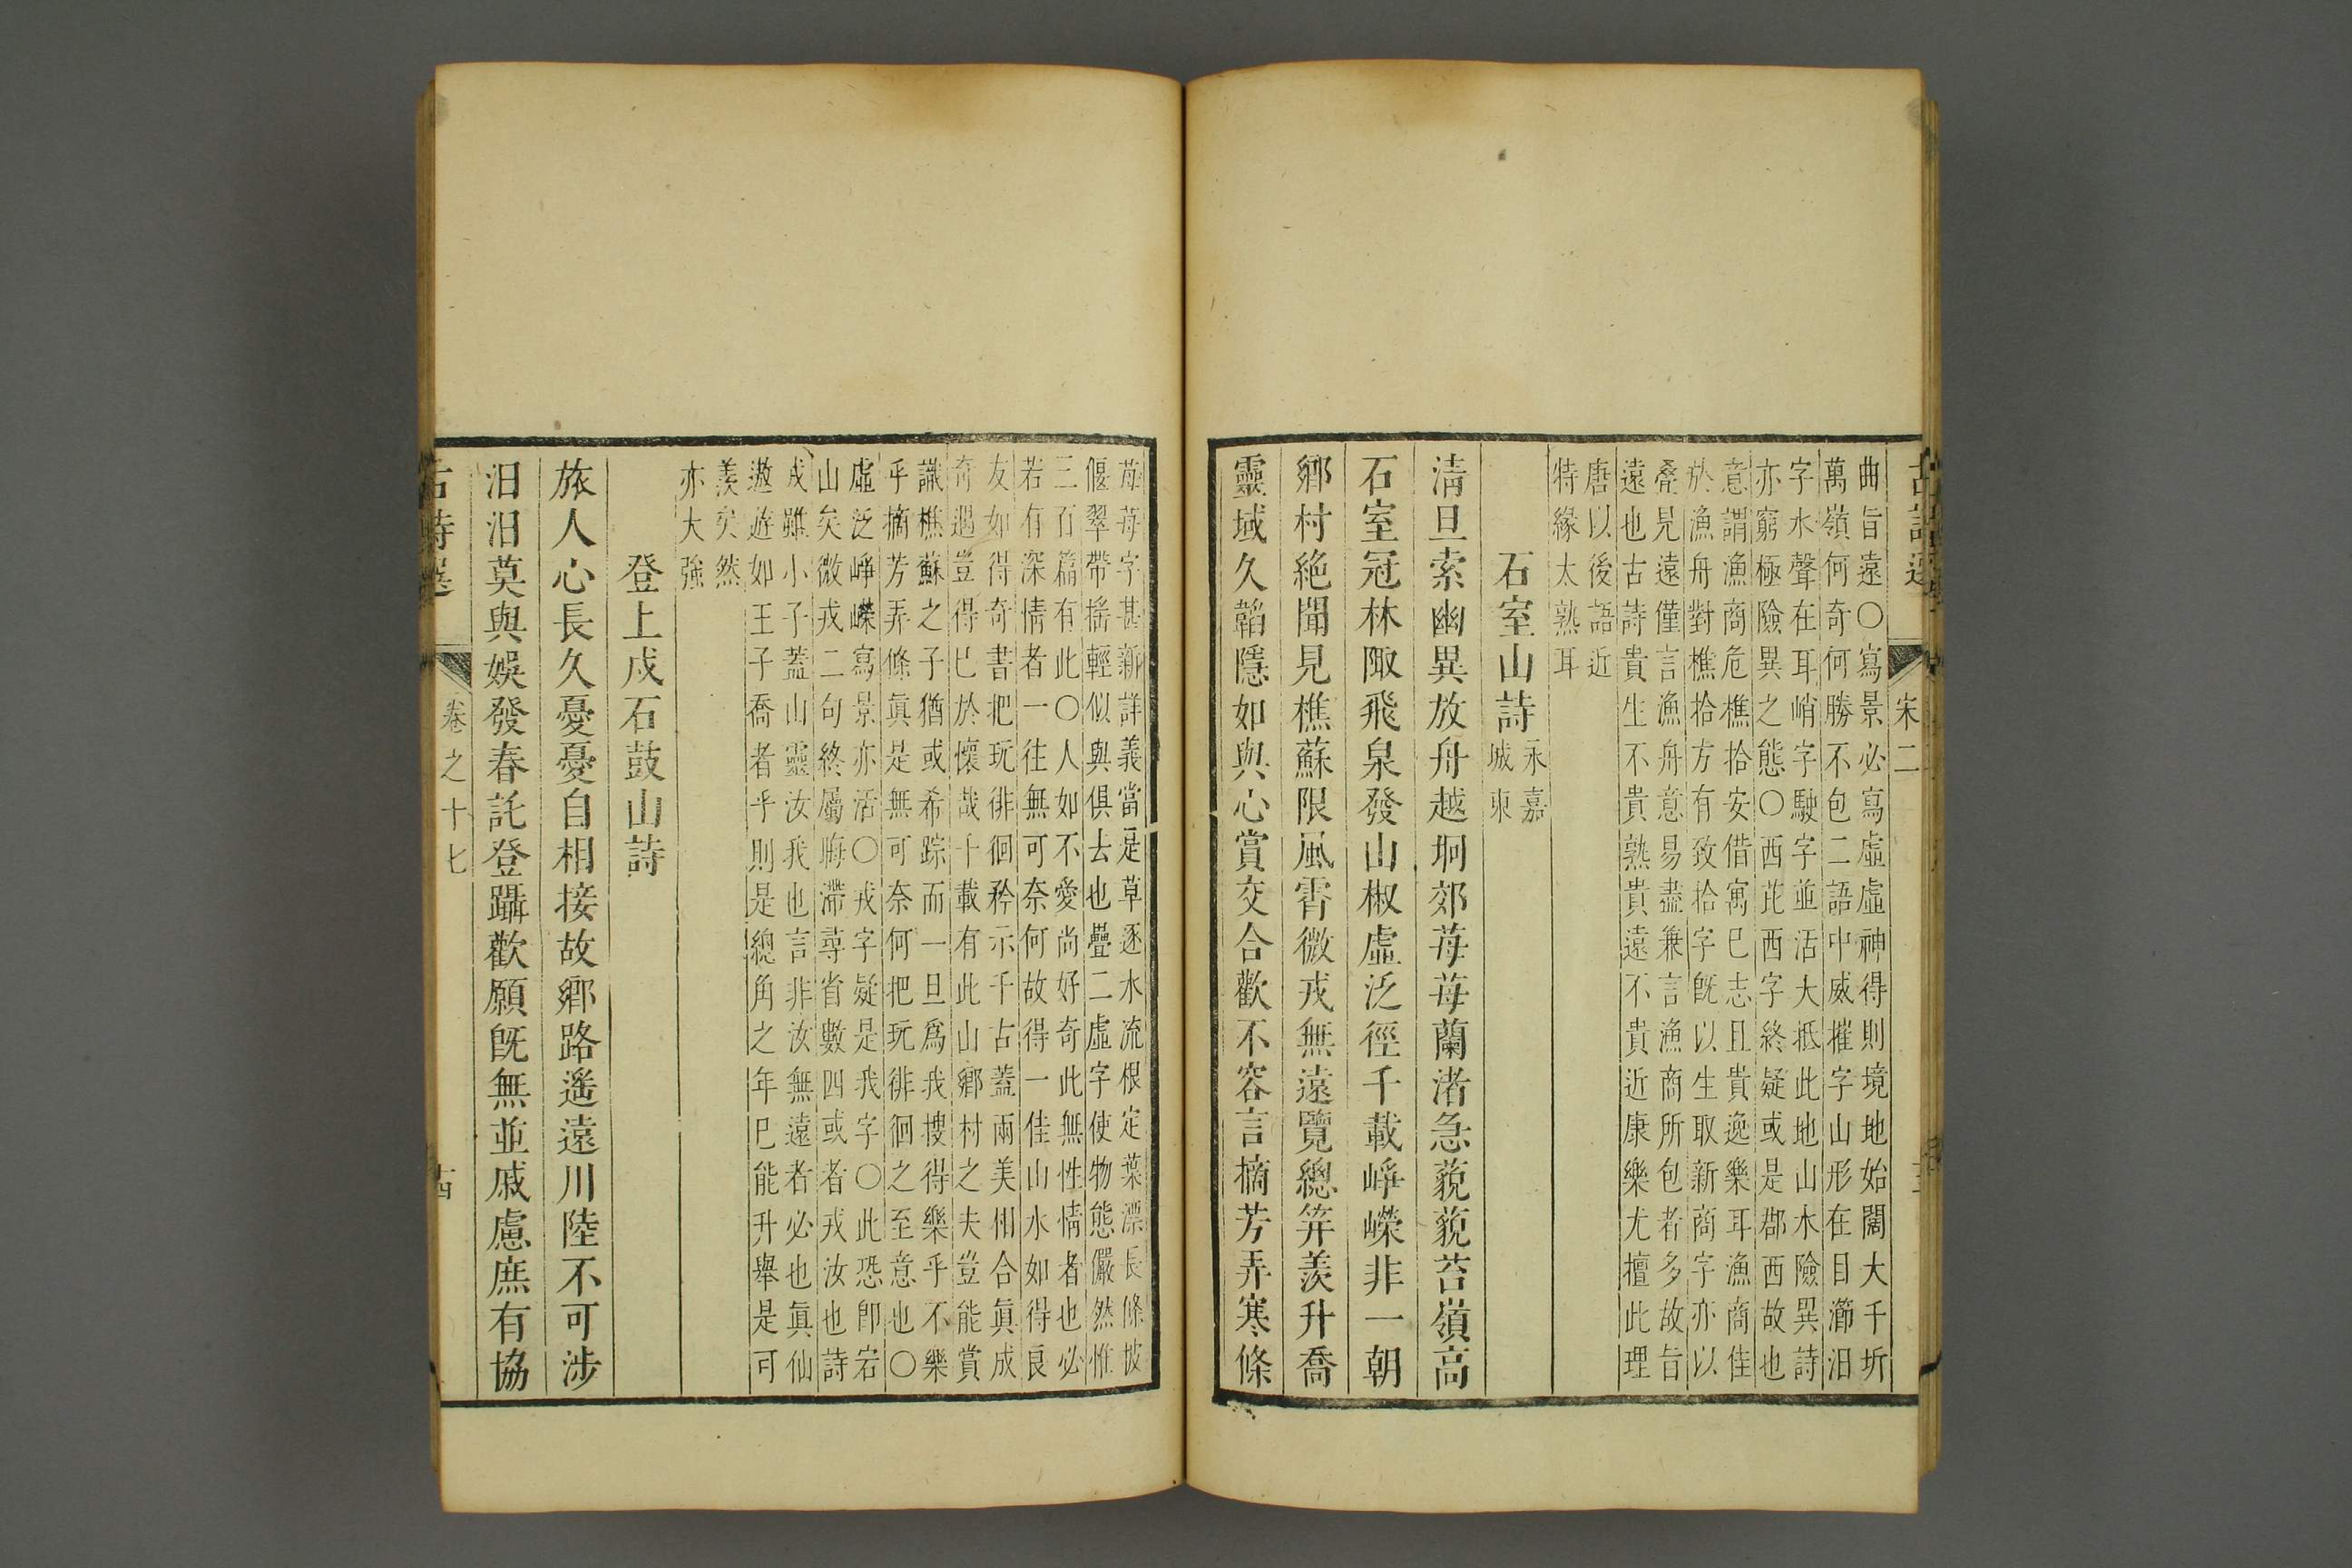 古詩選
宋二
曲旨遠○寫景必寫虛虛神得則境地始闊大千圻
萬嶺何奇何勝不包二語中威摧字山形在目瀄汨
字水聲在耳峭字駛字並活大抵此地山水險異詩
亦窮極險異之態○西茈西字終疑或是郡西故也
意謂漁商危樵拾安借寓巳志且貴逸樂耳漁商佳
於漁舟對樵拾方有致拾字旣以生取新商字亦以
疊見遠僅言漁舟意易盡兼言漁商所包者多故旨
遠也古詩貴生不貴熟貴遠不貴近康樂尤擅此理
唐以後語近
特緣太熟耳
石室山詩
永嘉
城東
清旦索幽異放舟越坰郊苺苺蘭渚急藐藐苔嶺高
石室冠林陬飛泉發山椒虛泛徑千載崢嶸非一朝
鄉村絶聞見樵蘇限風霄微戎無遠覽總笄羨升喬
靈域久韜隱如與心賞交合歡不容言摘芳弄寒條
苺苺字甚新詳義當是草逐水流根定葉漂長條披
偃翠帶搖輕似與俱去也疊二虛字使物態儼然惟
三百篇有此○人如不愛尚好奇此無性情者也必
若有深情者一往無可奈何故得一佳山水如得良
友如得奇書把玩徘徊矜示千古蓋兩美相合眞成
奇遇豈得巳於懷哉千載有此山鄉村之夫豈能賞
識樵蘇之子猶或希踪而一旦爲我搜得樂乎不樂
乎摘芳弄條眞是無可奈何把玩徘徊之至意也○
虛泛崢嶸寫景亦活○戎字疑是我字○此恐卽宕
山矣微戎二句終屬晦滯尋省數四或者戎汝也詩
戎雖小子蓋山靈汝我也言非汝無遠者必也眞仙
遨遊如王子喬者乎則是總角之年巳能升舉是可
羨矣然
亦大強
登上戍石鼓山詩
旅人心長久憂憂自相接故鄉路遙遠川陸不可涉
汩汩莫與娛發春託登躡歡願旣無並戚慮庶有協
古詩選
卷之十七
十四